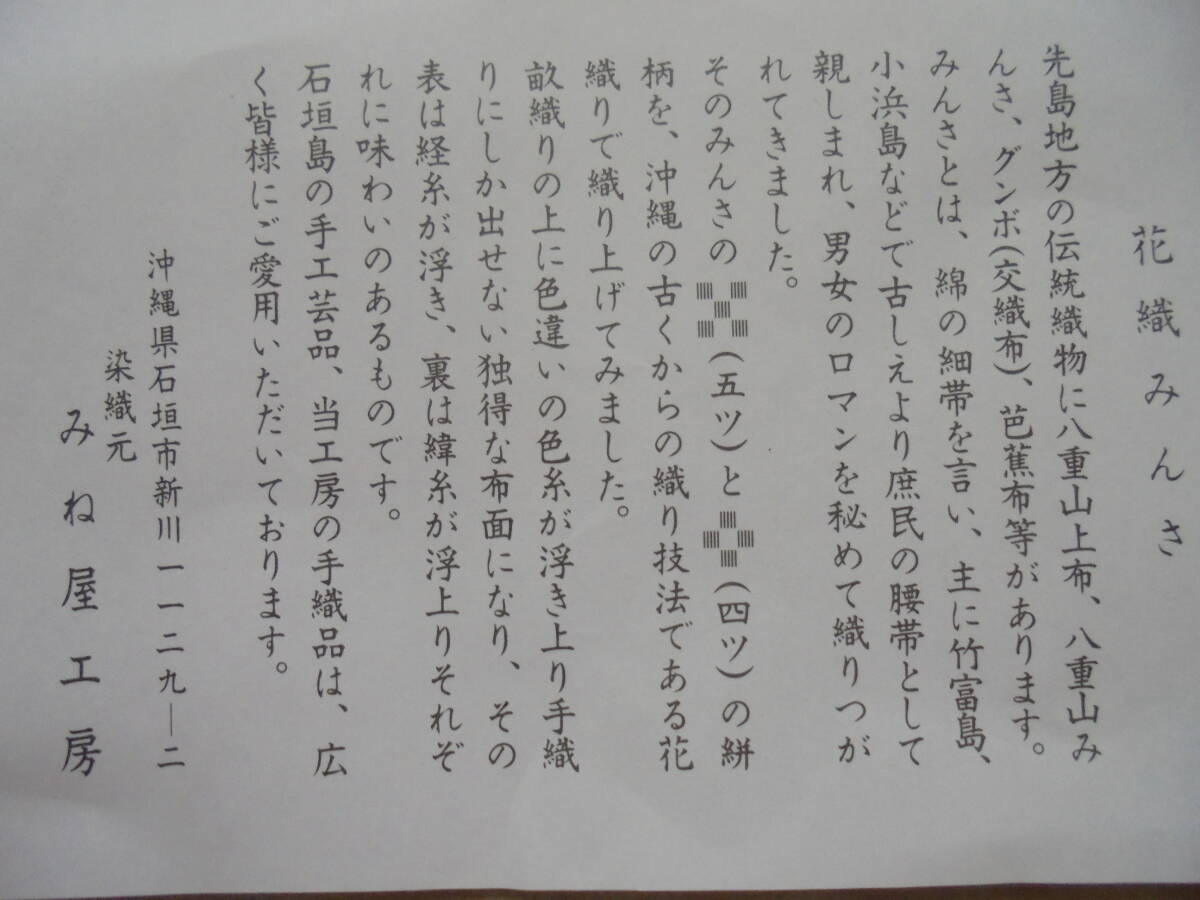 花織みんさ
先島地方の伝統織物に八重山上布、八重山み
んさ、グンボ(交織布)、芭蕉布等があります。
みんさとは、綿の細帯を言い、主に竹富島、
小浜島などで古しえより庶民の腰帯として
親しまれ、男女のロマンを秘めて織りつが
れてきました。
そのみんさの(五ツ)と(四ツ)の絣
柄を、沖縄の古くからの織り技法である花
織りで織り上げてみました。
畝織りの上に色違いの色糸が浮き上り手織
りにしか出せない独得な布面になり、その
表は経糸が浮き、裏は緯糸が浮上りそれぞ
れに味わいのあるものです。
石垣島の手工芸品、当工房の手織品は、広
く皆様にご愛用いただいております。
沖縄県石垣市新川一一二九―二
染織元
みね屋工房